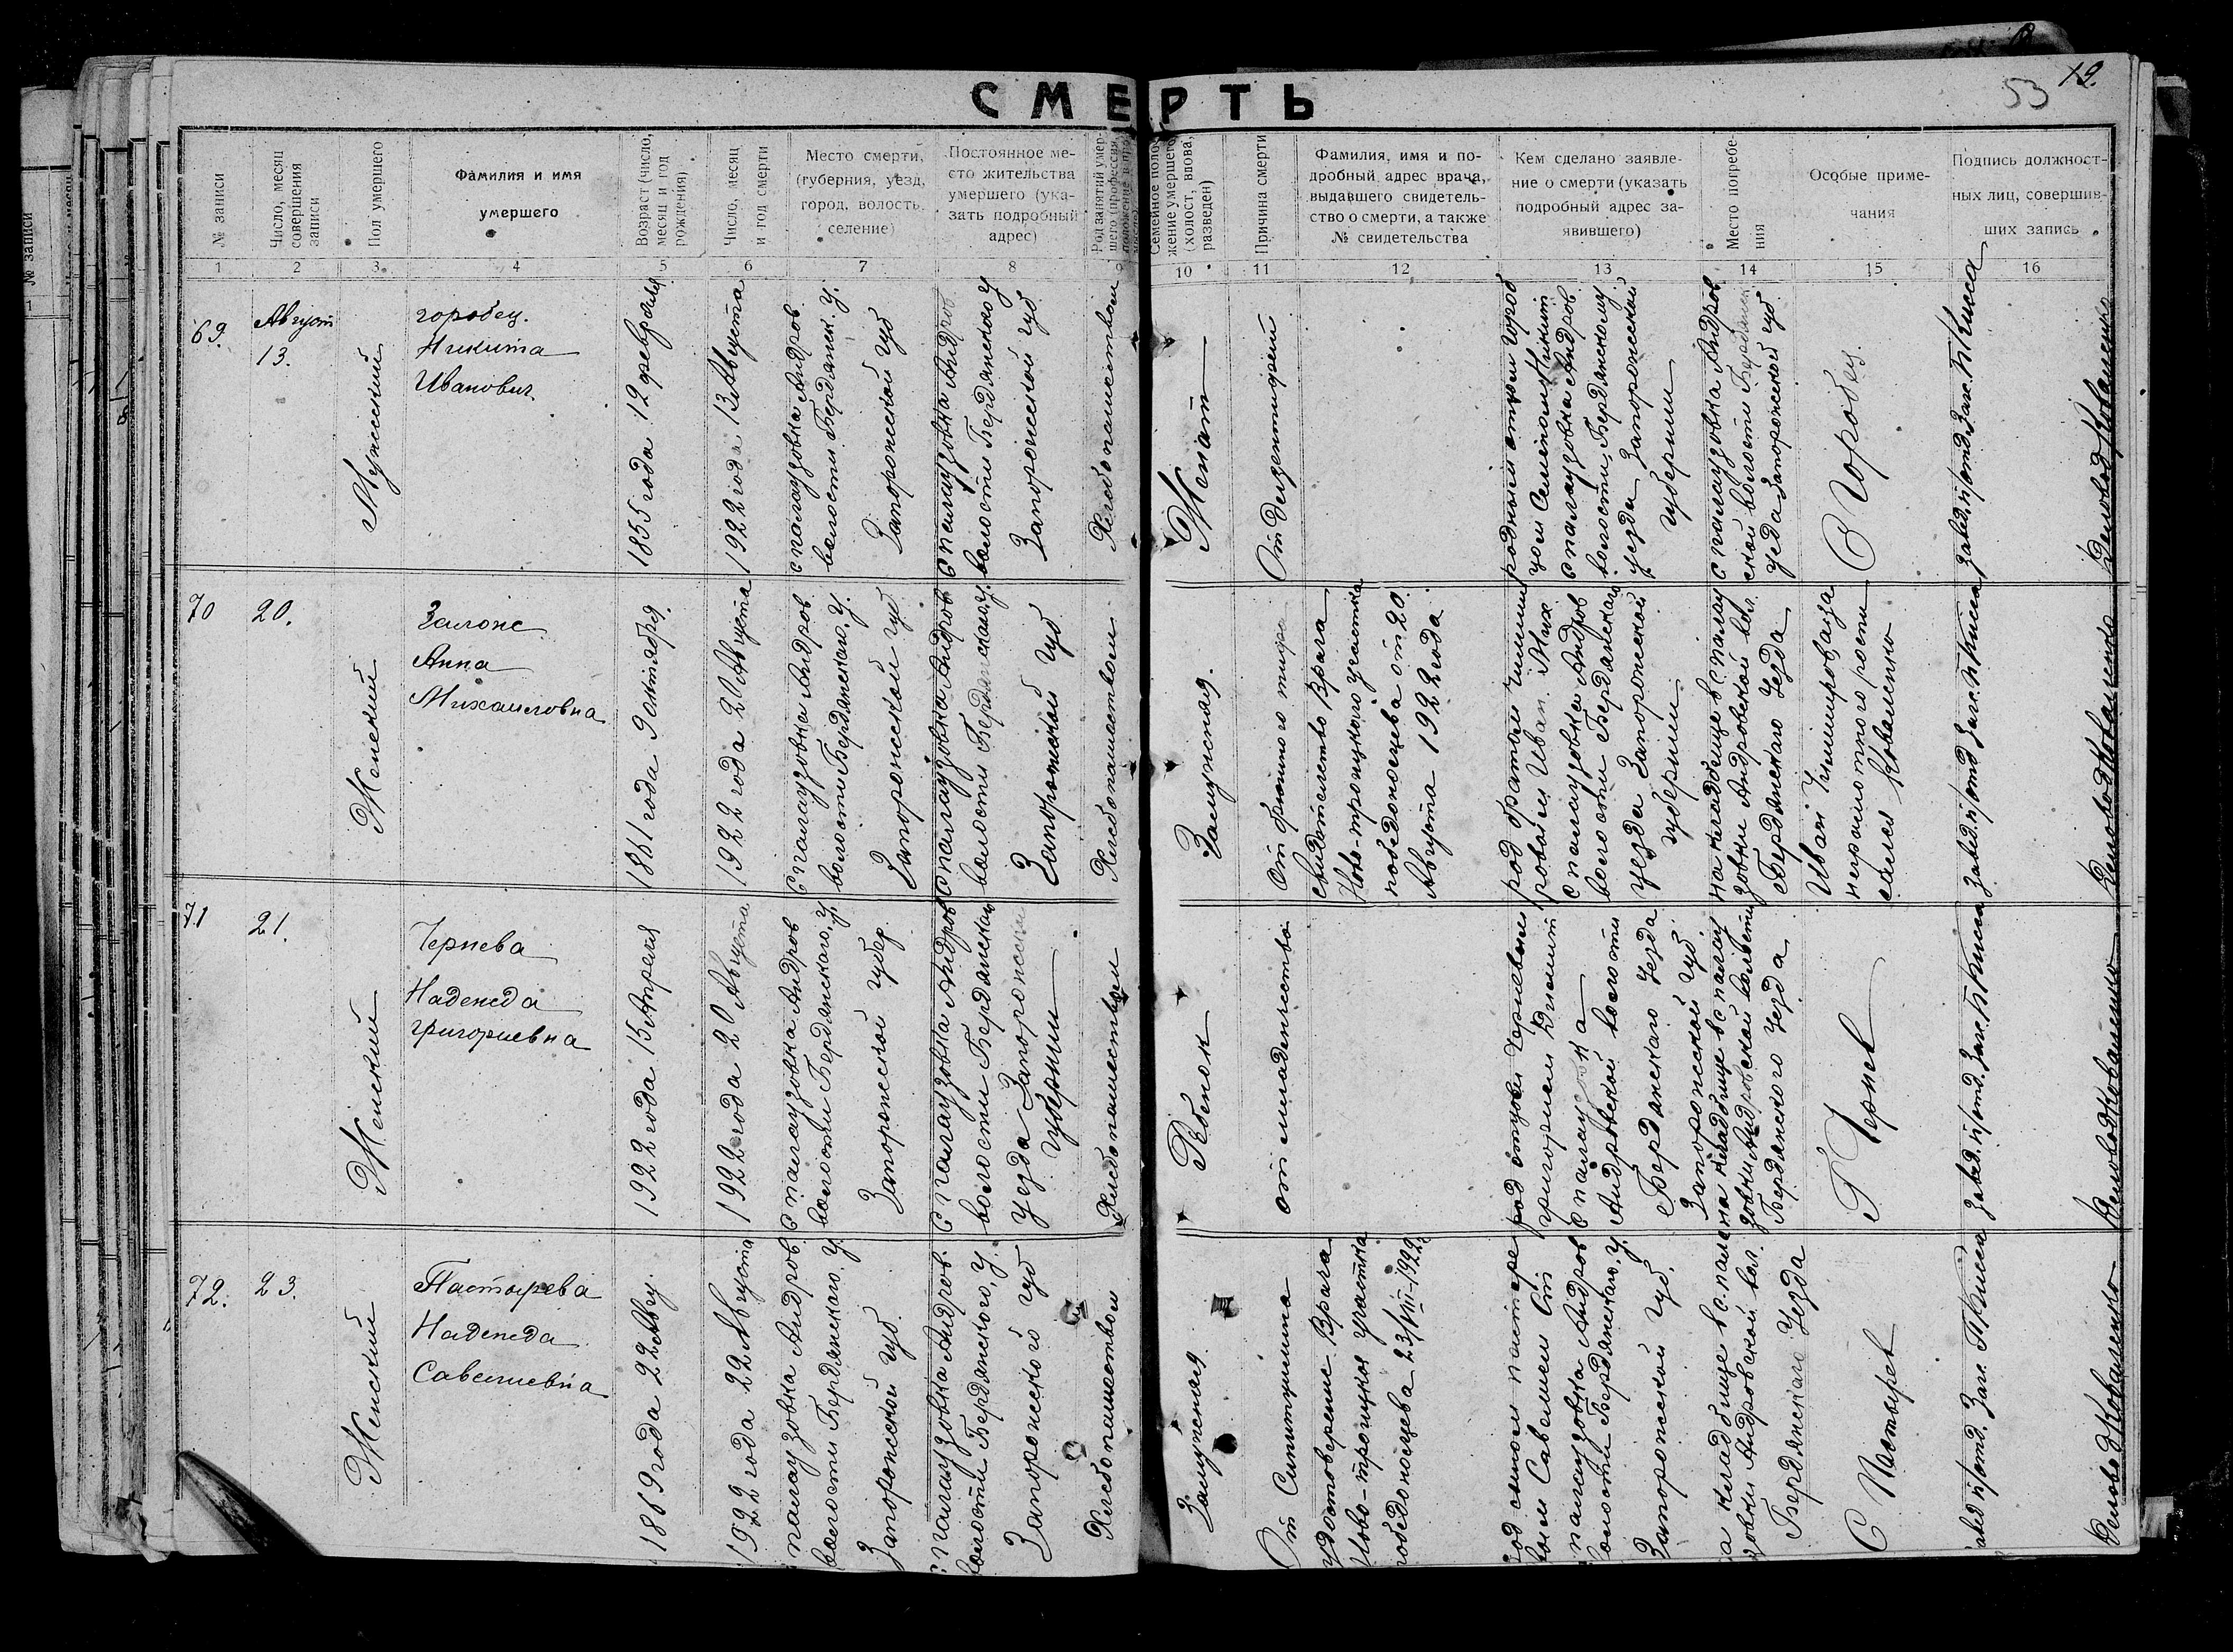 СМЕРТЬ
53 19.
№ записи
Число, месяц
совершения
записи
Пол умершего
Фамилия и имя
умершего
Возраст (число,
месяц и год
рождения)
Число, месяц
и год смерти
Место смерти,
(губерния, уезд,
город, волость,
селение)
Постоянное ме-
сто жительства
умершего (ука-
зать подробный
адрес)
Род занятий умер-
шего (профессия,
положение в про-
Семейное поло-
жение умершего
(холост, вдова,
разведен)
Причина смерти
Фамилия, имя и по-
дробный адрес врача,
выдавшего свидетель-
ство о смерти, а также
№ свидетельства
Кем сделано заявле-
ние о смерти (указать
подробный адрес за-
явившего)
Место погребе-
ния
Особые приме-
чания
Подпись должност-
ных лиц, совершив-
ших запись
1 2 3 4 5 6 7 8 9 10 11 12 13 14 15 16
69.
Август
13.
Мужеский
горобец.
Никита
Иванович.
1855 года 12 февраля
1922 года 13 Августа
с палаузовка Андров.
волости Бердянск. у.
Запорожской губ
с палаузовка Андров
волости Бердянского у
Запорожской губ.
Хлебопашеством
Женат
От дизентирии
родным отцом Гороб
цом Семеном Никит
с палаузовка Андров.
волости, Бердянскому
уезда Запорожской
губернии
с палаузовка Андров
ской волости Бердянск
уезда Запорожской губ.
Горобец.
завед. п/отд. Загс. Т Кисса
Деловод Коваленко
70
20.
Женский
Залоне
Анна
Михаиловна
1861 года 9 октября.
1922 года 20 Августа
с палаузовка Андров
волости Бердянского, у.
Запорожской губ
с палаузовка Андров
волости Бердянского у.
Запорожской губ
Хлебопашеством
Замужная.
От брюшного тифа
свидетельство Врача
Ново-троицкого участка
победоносцева от 20.
Августа 1922 года.
род братом Чимши
ровым Иван. Мих
с палаузовка Андров
волости Бердянского
уезда Запорожской
губернии
на кладбище в с палау
зовки Андровской вол.
Бердянского Уезда
Иван Чимширов, а за
неграмотного роспи
сался Коваленко
завед. п/отд Загс. Т Кисса
Деловод Коваленко
71
21.
Женский
Чернева
Надежда
григориевна
1922 года 15 Апреля
1922 года 20 Августа
с палаузовка Андров
волости Бердянского, у.
Запорожской губер.
с палаузовка Андров
волости Бердянском
уезда Запорожской
Губернии
Хлебопашеством
Ребенок
от младенчества
род отцом Черневым
григорием
с палаузовка
Андровской волости
Бердянского Уезда
Запорожской Губ.
на кладбище в с палау
зовки Андровской волости
Бердянского Уезда
Г Чернев
завед. п/отд. Загс. Т Кисса
Деловод Коваленко
72.
23.
Женский
Пастырева
Надежда
Савелиевна
1869 года 22 Авгу.
1922 года 22 Августа
палаузовка Андров.
волости Бердянского, у.
Запорожской губ.
с палаузовка Андров.
волости Бердянского, у.
Запорожского губ
Хлебопашеством
Замужная.
От
удостоверение Врача
Ново-троицкого участка
победоносцева 23/VIII-1922
род сыном пастыре
вым Савелием Ст
палаузовка Андров
волости Бердянского, у.
Запорожской губ.
на кладбище в с. пала
узовки Андровской вол.
Бердянского Уезда
С Пастырев
завед п/отд. Загс. Т Кисса
Деловод Коваленко
№ записи
1